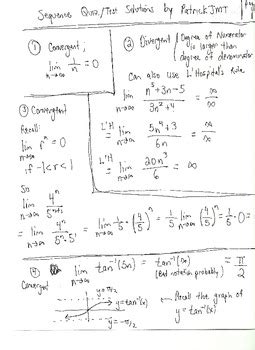 Sequence Quiz/Test Solutions by PatrickJMT
① Convergent;
lim n→∞ 1/n = 0
② Divergent (Degree of Numerator
is larger than
degree of denominator
Can also use L'Hospital's Rule
lim n→∞ (n⁵+3n-5)/(3n²+4) = ∞/∞
L'H = lim n→∞ (5n⁴+3)/(6n) = ∞/∞
L'H = lim n→∞ 20n³/6 = ∞
③ Convergent
Recall:
lim n→∞ rⁿ = 0
if -1<r<1
So
lim n→∞ 4ⁿ/5ⁿ⁺¹
= lim n→∞ 4ⁿ/(5ⁿ·5¹) = lim n→∞ 1/5·(4/5)ⁿ = 1/5 lim n→∞ (4/5)ⁿ = 1/5·0 = 0
④ lim n→∞ tan⁻¹(5n) = tan⁻¹(∞) = π/2
Convergent
(bad notation probably)
y=π/2
y=tan⁻¹(x)
y=-π/2
Recall the graph of
y=tan⁻¹(x)